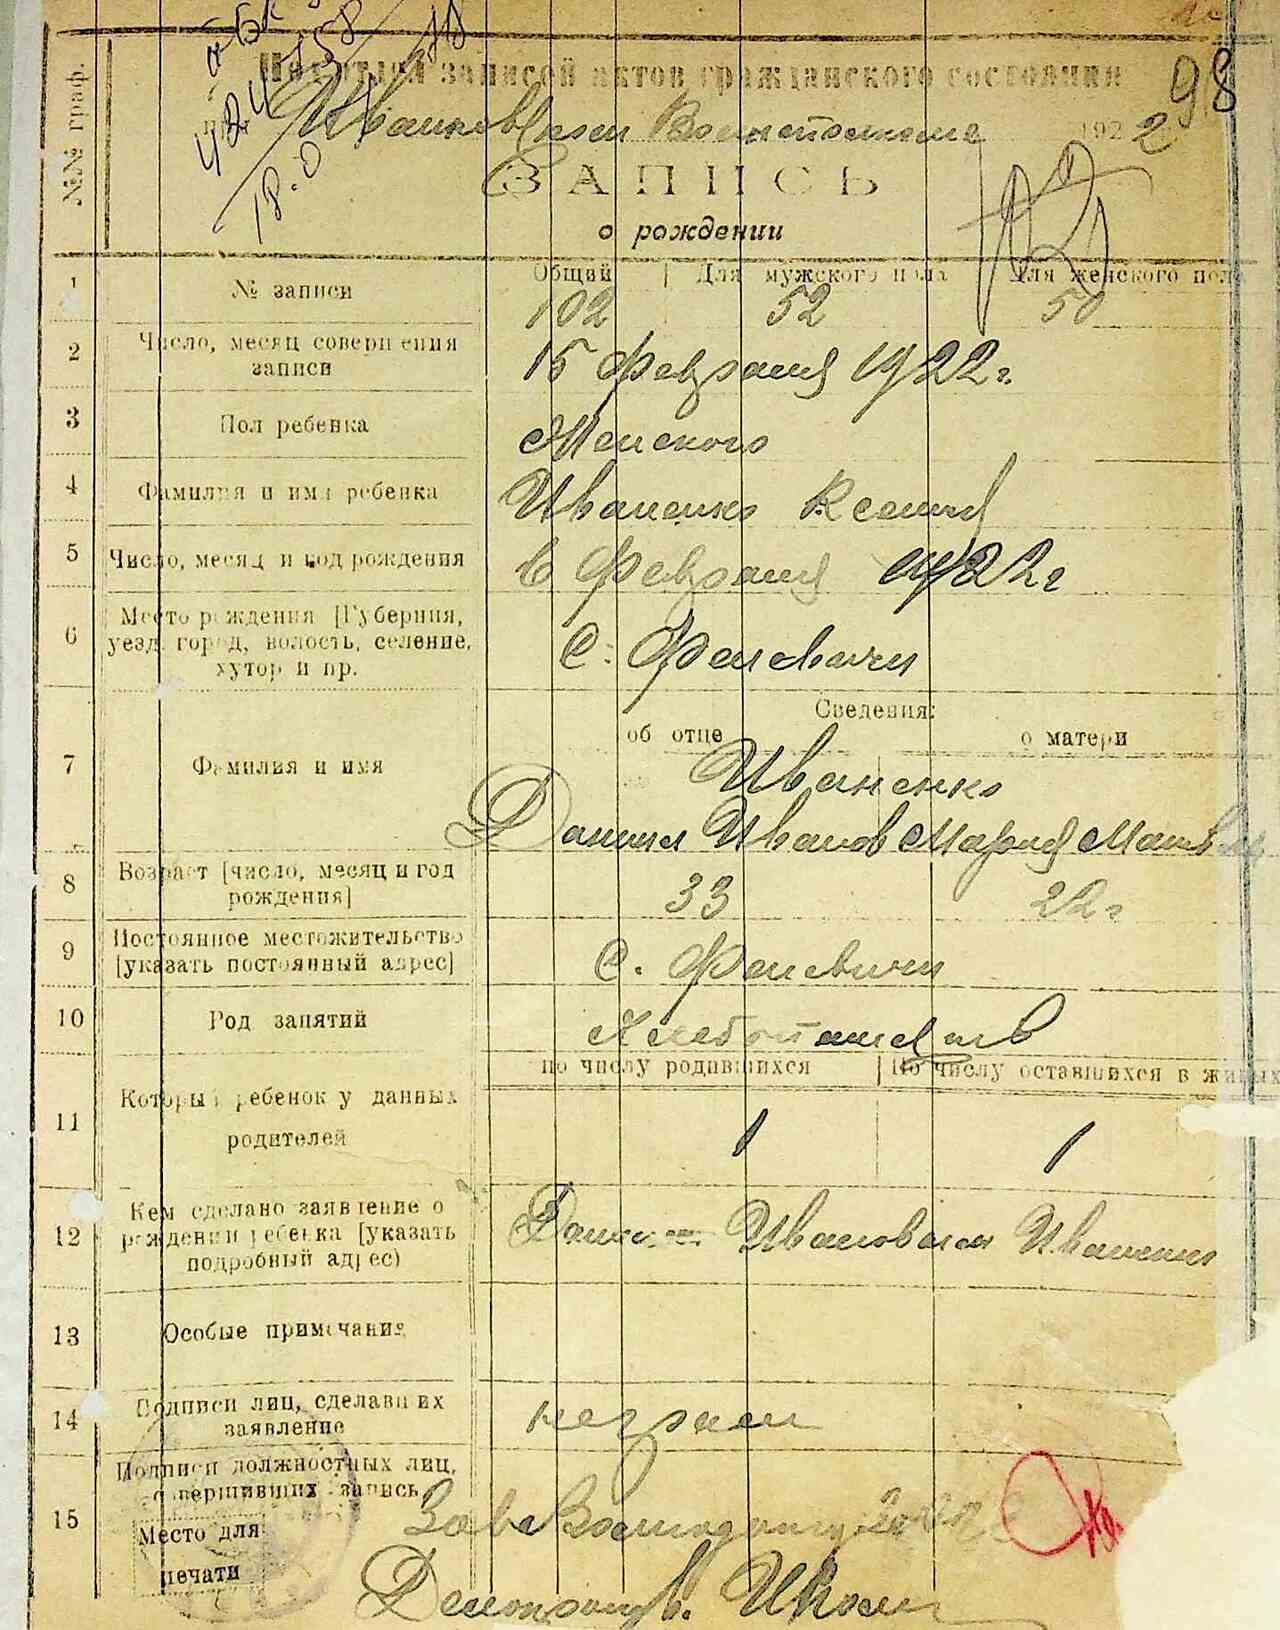 98
Подотдел записей актов гражданского состояния
1922
ЗАПИСЬ
о рождении
№№ граф.
Общий | Для мужского пола | Для женского пол
1 № записи 102 52 50
2 Число, месяц совершения
записи
15 Февраля 1922 г.
3 Пол ребенка Женского
4 Фамилия и имя ребенка Иваненко Ксения
5 Число, месяц и год рождения 6 Февраля 1922 г
6 Место рождения [Губерния,
уезд, город, волость, селение,
хутор и пр.
С. Феневичи
Сведения:
об отце о матери
7 Фамилия и имя
Иваненко
Даниил Иванов Мария
8 Возраст [число, месяц и год
рождения]
33 22 г
9 Постоянное местожительство
[указать постоянный адрес]
С. Феневичи
10 Род занятий
по числу родившихся | По числу оставшихся в живых
11 Который ребенок у данных
родителей
1 1
12 Кем сделано заявление о
рождении ребенка [указать
подробный адрес)
Иваненко
13 Особые примечания
14 Подписи лиц, сделавших
заявление
неграм
15 Подписи должностных лиц,
совершивших запись
Место для
печати